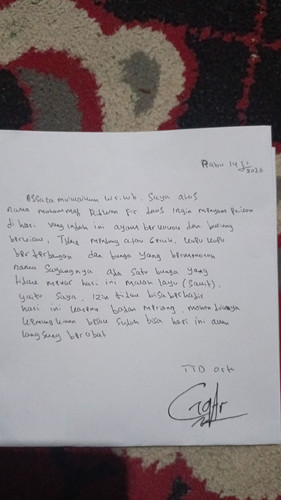 Rabu 14 / 1 / 2026
Assalamualaikum wr.wb. Saya atas
nama muhammad
di hari yang indah ini ayam berkokok dan burung
berkicau, Tidak mendung atau Gelap, kupu kupu
berterbangan dan bunga yang bermekaran
namun Sayangnya ada satu bunga yang
tidak mekar hari ini malah layu (sakit),
yaitu Saya, izin tidak bisa berhadir
hari ini karena badan meriang, mohon doanya
kemungkinan besok sudah bisa hari ini akan
langsung berobat
TTD ortu